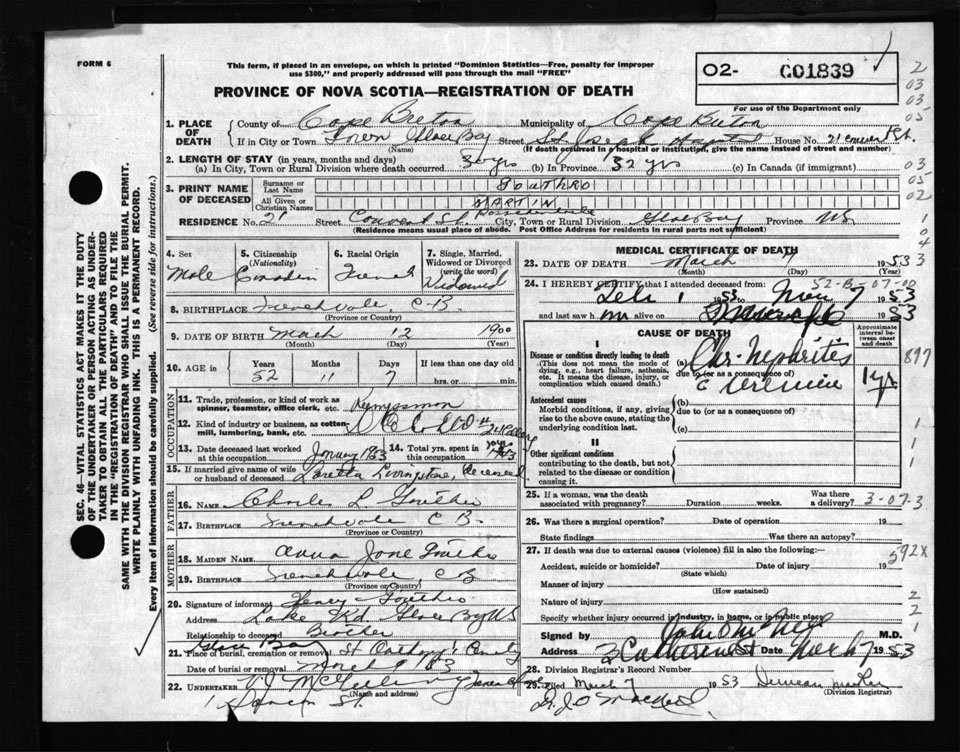 FORM 6
This form, if placed in an envelope, on which is printed "Dominion Statistics—Free, penalty for improper
use $300," and properly addressed will pass through the mail "FREE"
O2- C01839
PROVINCE OF NOVA SCOTIA—REGISTRATION OF DEATH
For use of the Department only
1. PLACE OF DEATH
County of Cape Breton Municipality of Cape Breton
If in City or Town Town Glace Bay Street St. Joseph Hospital House No. 21 Convent St.
(Name) (If death occurred in a hospital or institution, give the name instead of street and number)
2. LENGTH OF STAY (in years, months and days)
(a) In City, Town or Rural Division where death occurred yrs (b) In Province 32 yrs (c) In Canada (if immigrant)
3. PRINT NAME OF DECEASED
Surname or Last Name GOUTHRO
All Given or Christian Names MARTIN
RESIDENCE No. 21 Street Convent St City, Town or Rural Division Glace Bay Province NS
(Residence means usual place of abode. Post Office Address for residents in rural parts not sufficient)
4. Sex Male
5. Citizenship (Nationality) Canadian
6. Racial Origin French
7. Single, Married, Widowed or Divorced (write the word) Widowed
8. BIRTHPLACE French Vale C-B.
(Province or Country)
9. DATE OF BIRTH March 12 1900
(Month) (Day) (Year)
10. AGE in Years 52 Months 11 Days 7 If less than one day old
hrs. or min.
OCCUPATION
11. Trade, profession, or kind of work as spinner, teamster, office clerk, etc.
12. Kind of industry or business, as cotton-mill, lumbering, bank, etc.
13. Date deceased last worked at this occupation January 1953
14. Total yrs. spent in this occupation
15. If married give name of wife or husband of deceased Loretta Livingstone, deceased
FATHER
16. NAME Charles L. Gouthro
17. BIRTHPLACE French Vale C B.
(Province or Country)
MOTHER
18. MAIDEN NAME Anna Jane Gouthro
19. BIRTHPLACE French Vale C B
(Province or Country)
20. Signature of informant Henry Gouthro
Address Lake Rd. Glace Bay NS
Relationship to deceased Brother
21. Place of burial, cremation or removal Glace Bay St Anthony's Cemetery
Date of burial or removal March 9 53
22. UNDERTAKER V.J. Glace Bay
(Name and address)
St.
MEDICAL CERTIFICATE OF DEATH
23. DATE OF DEATH March 7 1953
(Month) (Day) (Year)
24. I HEREBY CERTIFY that I attended deceased from: 52-B-07-00
Feb 1 1953 to Mar 7 1953
and last saw h m alive on 1953
CAUSE OF DEATH
Approximate interval between onset and death
I
Disease or condition directly leading to death
(This does not mean the mode of dying, e.g., heart failure, asthenia, etc. It means the disease, injury, or complication which caused death.)
(a) Chr. Nephritis
due to (or as a consequence of)
c Uremia 1 yr
Antecedent causes
Morbid conditions, if any, giving rise to the above cause, stating the underlying condition last.
(b)
due to (or as a consequence of)
(c)
II
Other significant conditions
contributing to the death, but not related to the disease or condition causing it.
25. If a woman, was the death associated with pregnancy? Duration weeks. Was there a delivery?
3-07-3
26. Was there a surgical operation? Date of operation 19
State findings Was there an autopsy?
27. If death was due to external causes (violence) fill in also the following:
592X
Accident, suicide or homicide? Date of injury 19
(State which)
Manner of injury
(How sustained)
Nature of injury
Specify whether injury occurred in industry, in home, or in public place
Signed by M.D.
Address Catherine St Date Mch 7 1953
28. Division Registrar's Record Number
29. Filed March 7 1953 Duncan
(Division Registrar)
SEC. 46—VITAL STATISTICS ACT MAKES IT THE DUTY
OF THE UNDERTAKER OR PERSON ACTING AS UNDER-
TAKER TO OBTAIN ALL THE PARTICULARS REQUIRED
IN THE "REGISTRATION OF DEATH" AND TO FILE THE
SAME WITH THE DIVISION REGISTRAR WHO SHALL ISSUE THE BURIAL PERMIT.
WRITE PLAINLY WITH UNFADING INK. THIS IS A PERMANENT RECORD.
Every item of information should be carefully supplied. (See reverse side for instructions.)
2
03
03
05
03
05
02
0
4
3
897
1
1
1
2
2
1